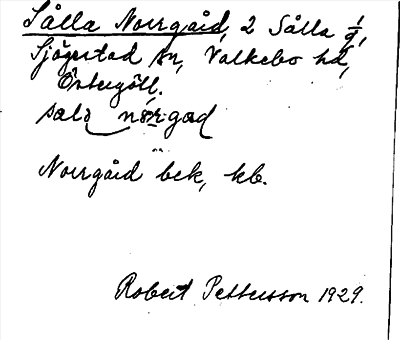 Sålla Norrgård, 2 Sålla 1/9,
Sjögestad sn, Valkebo hd,
Östergötl.
sald norgad
Norrgård bek, kb.
Robert Pettersson 1929.